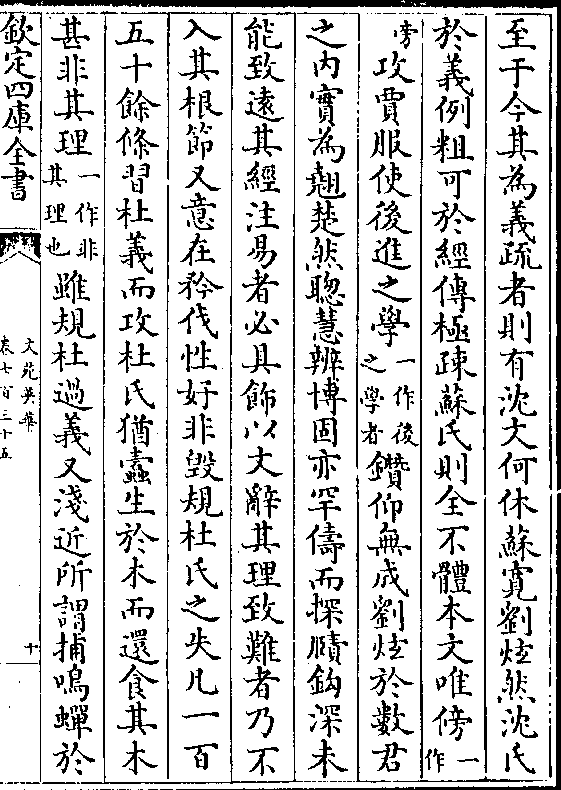 至于今其為義疏者則有沈文何休蘇寛劉炫然沈氏
於義例粗可於經傳極疎蘇氏則全不體本文唯傍一作
旁攻賈服使後進之學一作後之學者鑽仰無成劉炫於數君
之内實為翹楚然聰慧辨博固亦罕儔而探賾鈎深未
能致遠其經注易者必具飾以文辭其理致難者乃不
入其根節又意在矜伐性好非毁規杜氏之失凡一百
五十餘條習杜義而攻杜氏猶蠹生於木而還食其木
甚非其理一作非其理也雖規杜過義又淺近所謂捕鳴蟬於
欽定四庫全書
文苑英華
卷七百三十五
十